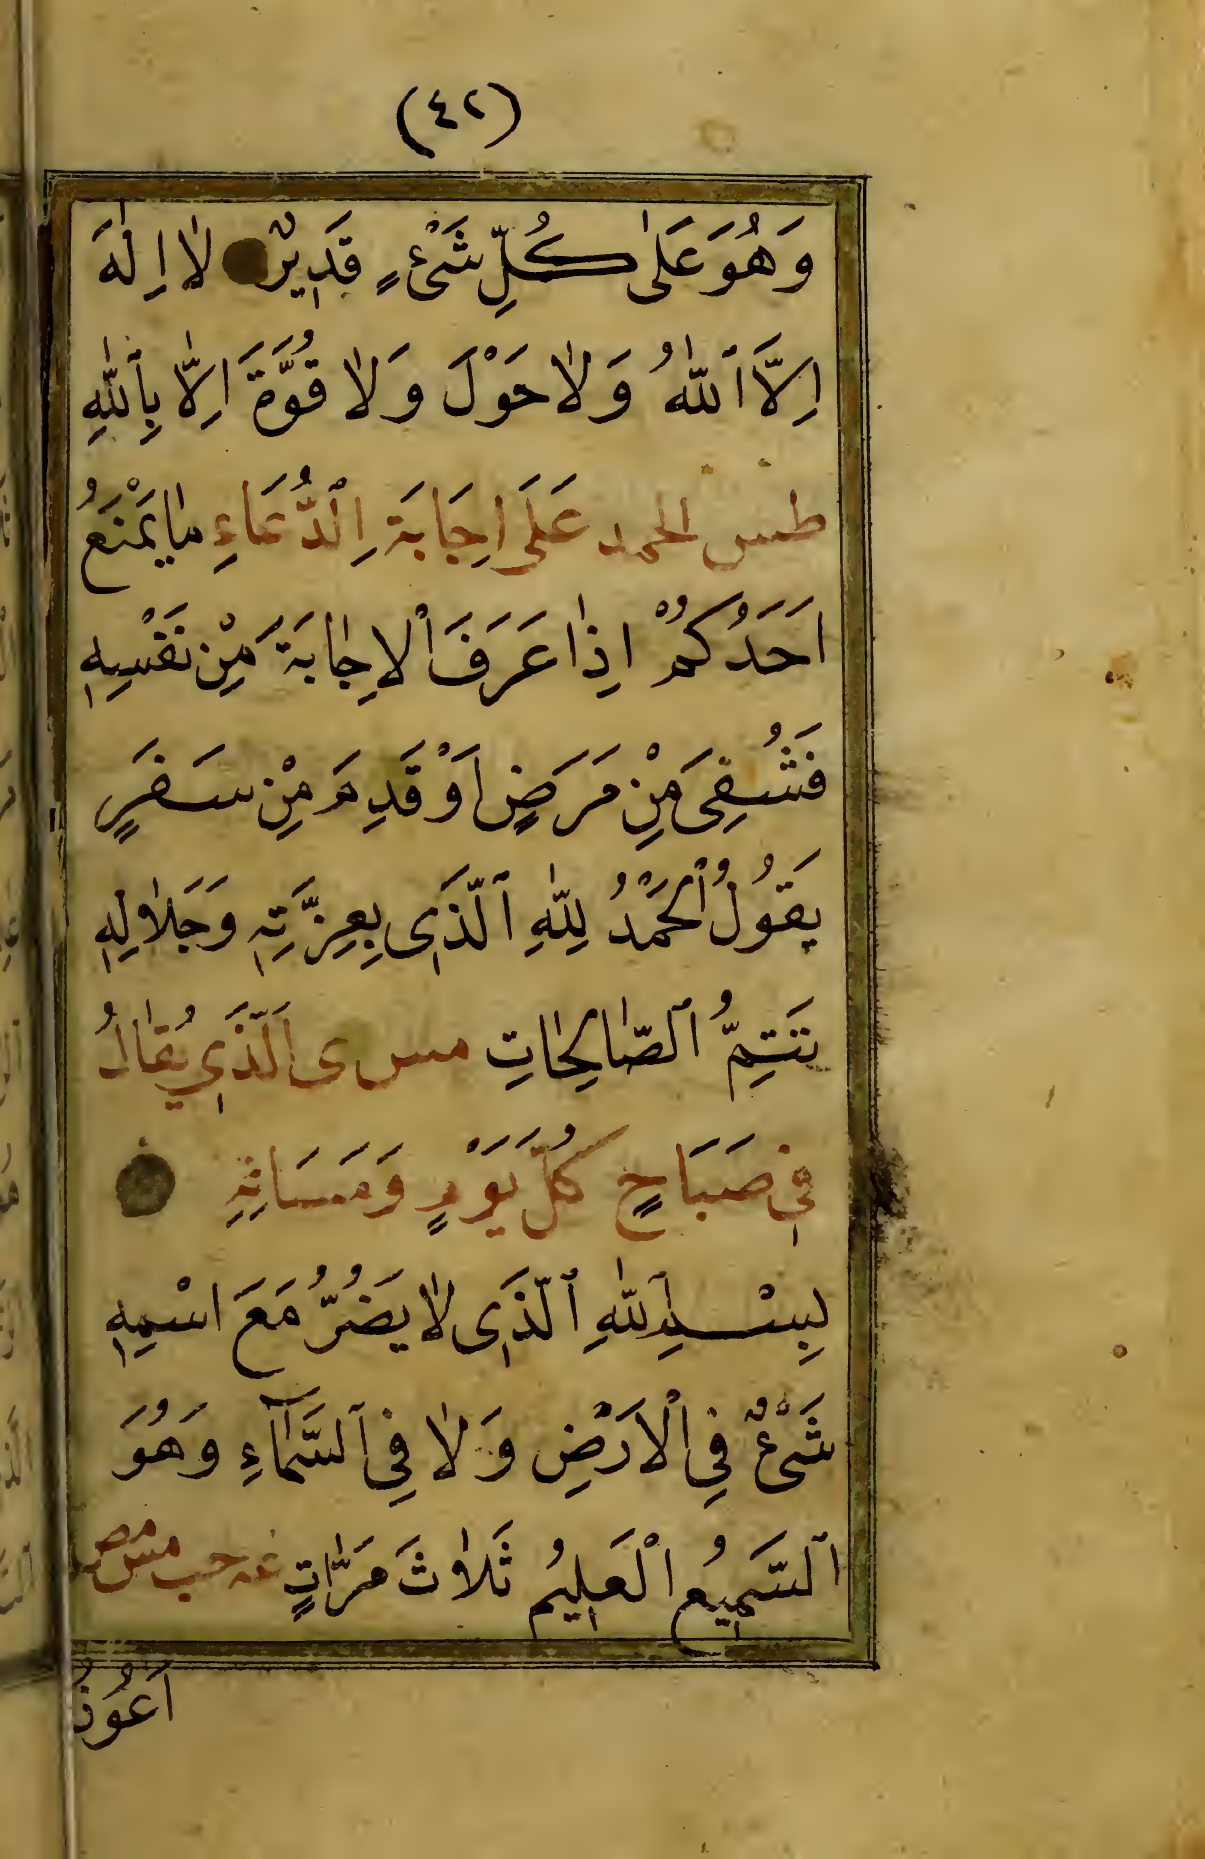 (٤٢)
وَهُوَ عَلٰى كُلِّ شَىْءٍ قَدِيرٌ لٰا اِلٰهَ
اِلَّا ٱللّٰهُ وَلٰا حَوْلَ وَلٰا قُوَّةَ اِلّٰا بِٱللّٰهِ
طس الحمد عَلَى اِجَابَةِ الدُّعَاءِ مٰا يَمْنَعُ
اَحَدَكُمْ اِذٰا عَرَفَ ٱلْاِجٰابَةَ مِنْ نَفْسِهِ
فَشُفِىَ مِنْ مَرَضٍ اَوْ قَدِمَ مِنْ سَفَرٍ
يَقُولُ ٱلْحَمْدُ لِلّٰهِ ٱلَّذِى بِعِزَّتِهِ وَجَلٰالِهِ
تَتِمُّ ٱلصّٰالِحٰاتِ مس ى اَلَّذِي يُقٰالُ
فِى صَبَاحِ كُلِّ يَوْمٍ وَمَسَائِهِ
بِسْمِ ٱللّٰهِ ٱلَّذِى لٰا يَضُرُّ مَعَ اسْمِهِ
شَىْءٌ فِى ٱلْاَرْضِ وَلٰا فِى ٱلسَّمٰآءِ وَهُوَ
ٱلسَّمِيعُ ٱلْعَلِيمُ ثَلٰاثَ مَرّٰاتٍ عه حب مس مص
اَعُوذُ